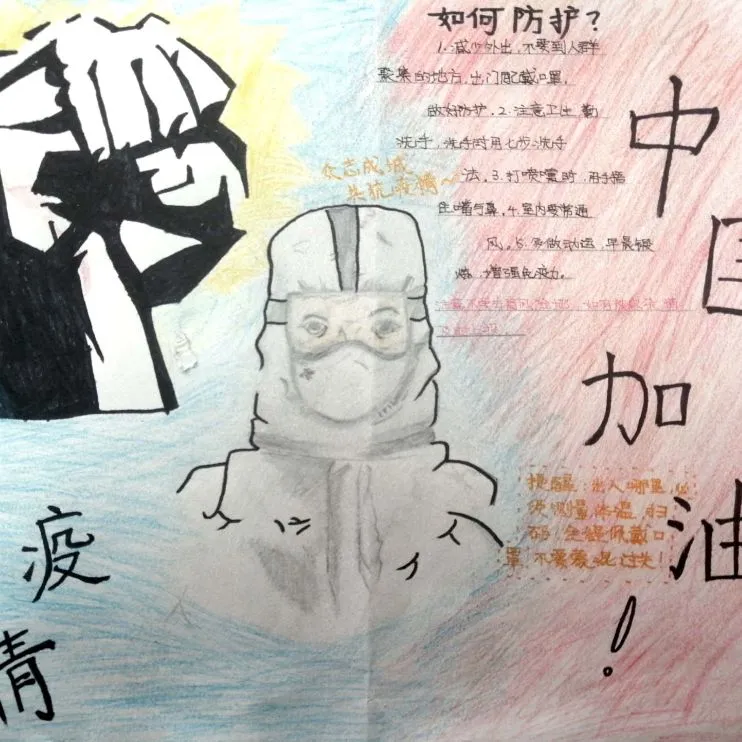 如何防护？
1.减少外出，不要到人群
聚集的地方，出门配戴口罩，
做好防护，2.注意卫生 勤
洗手，洗手时用七步洗手
法。3.打喷嚏时 用手捂
住嘴与鼻，4.室内要常通
风。5.多做动运，早晨锻
炼，增强免疫力。
众志成城
共抗疫情～
中国加油！
提醒：出入哪里，必
须测量体温，扫
码，全程佩戴口
罩，不要蒙混过关！
疫
情